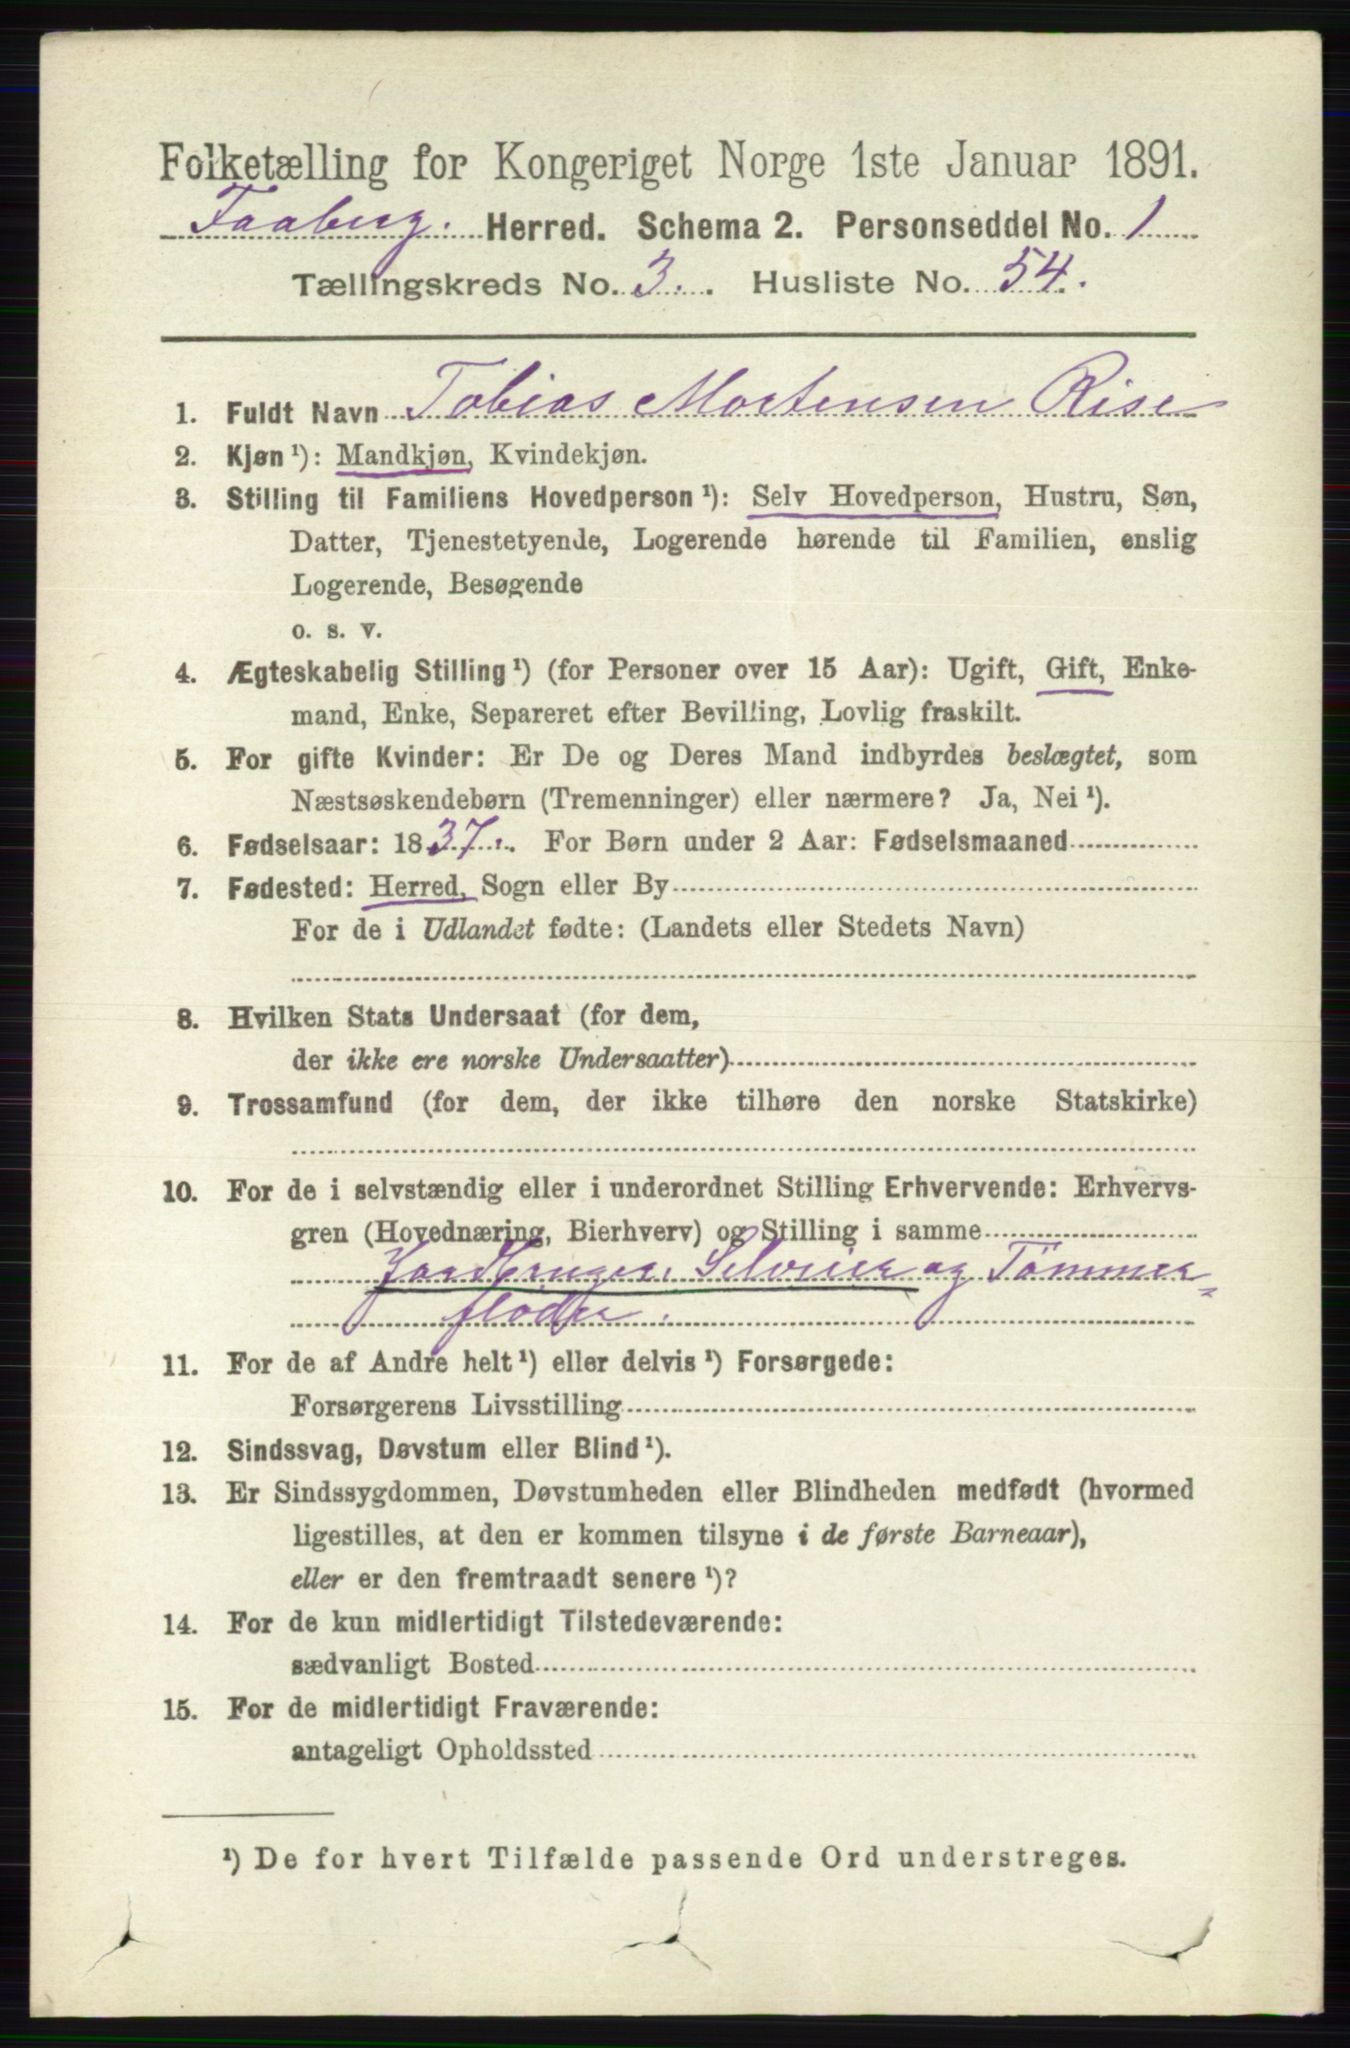 Folketælling for Kongeriget Norge 1ste Januar 1891.
Faaberg. Herred. Schema 2. Personseddel No. 1
Tællingskreds No. 3. Husliste No. 54.
1. Fuldt Navn Tobias Mortensen Rise
2. Kjøn ¹): Mandkjøn, Kvindekjøn.
3. Stilling til Familiens Hovedperson ¹): Selv Hovedperson, Hustru, Søn,
Datter, Tjenestetyende, Logerende hørende til Familien, enslig
Logerende, Besøgende
o. s. v.
4. Ægteskabelig Stilling ¹) (for Personer over 15 Aar): Ugift, Gift, Enke-
mand, Enke, Separeret efter Bevilling, Lovlig fraskilt.
5. For gifte Kvinder: Er De og Deres Mand indbyrdes beslægtet, som
Næstsøskendebørn (Tremenninger) eller nærmere? Ja, Nei ¹).
6. Fødselsaar: 1837. For Børn under 2 Aar: Fødselsmaaned
7. Fødested: Herred, Sogn eller By
For de i Udlandet fødte: (Landets eller Stedets Navn)
8. Hvilken Stats Undersaat (for dem,
der ikke ere norske Undersaatter)
9. Trossamfund (for dem, der ikke tilhøre den norske Statskirke)
10. For de i selvstændig eller i underordnet Stilling Erhvervende: Erhvervs-
gren (Hovednæring, Bierhverv) og Stilling i samme
Jordbruger, Selveier og Tömmer-
fløder.
11. For de af Andre helt ¹) eller delvis ¹) Forsørgede:
Forsørgerens Livsstilling
12. Sindssvag, Døvstum eller Blind ¹).
13. Er Sindssygdommen, Døvstumheden eller Blindheden medfødt (hvormed
ligestilles, at den er kommen tilsyne i de første Barneaar),
eller er den fremtraadt senere ¹)?
14. For de kun midlertidigt Tilstedeværende:
sædvanligt Bosted
15. For de midlertidigt Fraværende:
antageligt Opholdssted
¹) De for hvert Tilfælde passende Ord understreges.